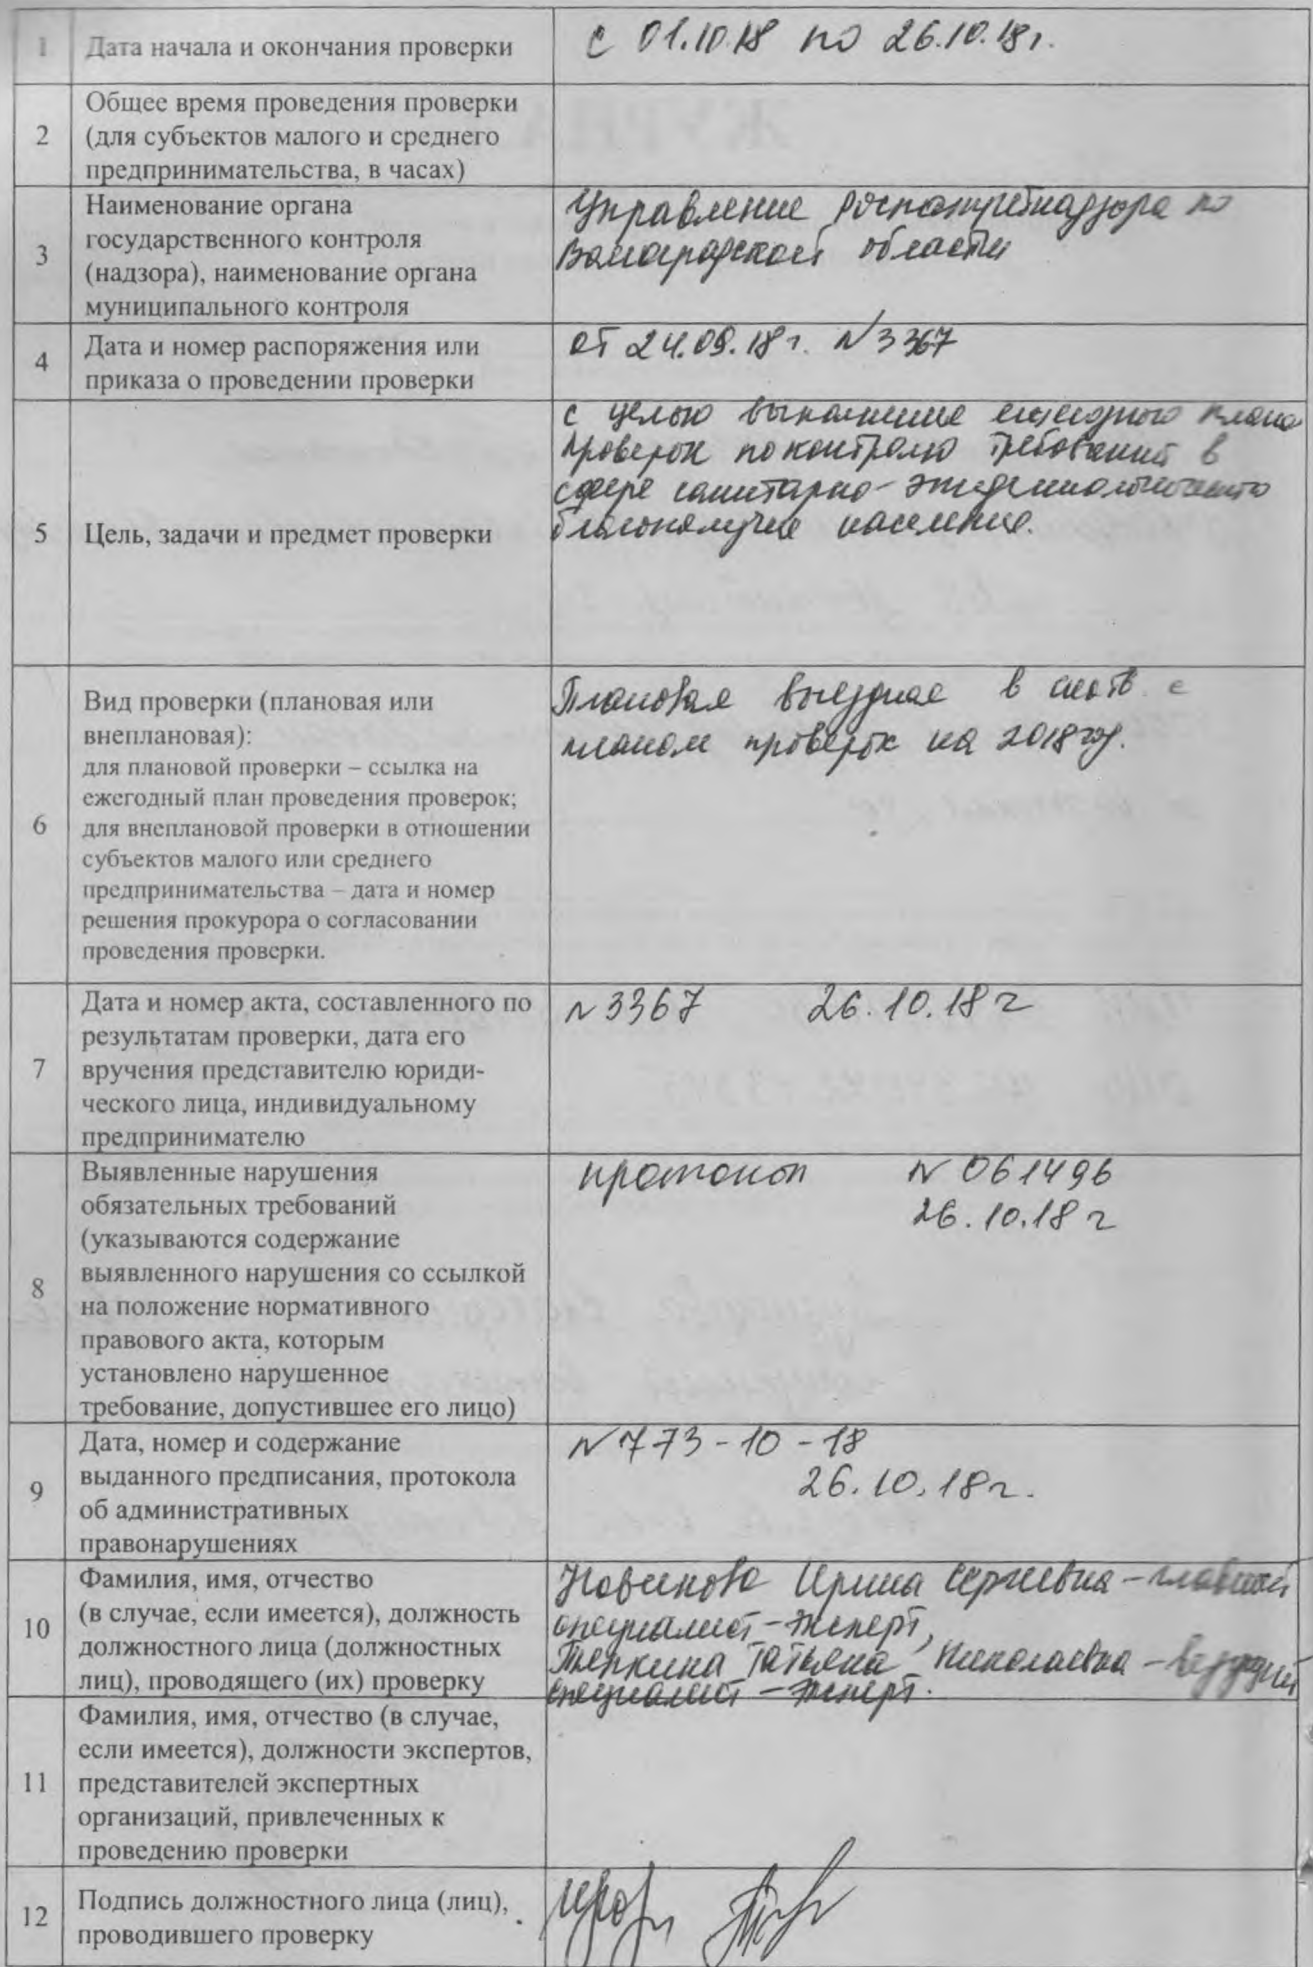 1 Дата начала и окончания проверки
с 01.10.18 по 26.10.18г.
2
Общее время проведения проверки
(для субъектов малого и среднего
предпринимательства, в часах)
3
Наименование органа
государственного контроля
(надзора), наименование органа
муниципального контроля
Управление Роспотребнадзора по
Волгоградской области
4
Дата и номер распоряжения или
приказа о проведении проверки
от 24.09.18г. №3367
5 Цель, задачи и предмет проверки
с целью выполнение ежегодного плана
проверок по контролю требований в
сфере санитарно-эпидемиологического
благополучия населения.
6
Вид проверки (плановая или
внеплановая):
для плановой проверки – ссылка на
ежегодный план проведения проверок;
для внеплановой проверки в отношении
субъектов малого или среднего
предпринимательства – дата и номер
решения прокурора о согласовании
проведения проверки.
Плановая выездная в соотв. с
планом проверок на 2018 год.
7
Дата и номер акта, составленного по
результатам проверки, дата его
вручения представителю юриди-
ческого лица, индивидуальному
предпринимателю
№3367 26.10.18г
8
Выявленные нарушения
обязательных требований
(указываются содержание
выявленного нарушения со ссылкой
на положение нормативного
правового акта, которым
установлено нарушенное
требование, допустившее его лицо)
протокол № 061496
26.10.18г
9
Дата, номер и содержание
выданного предписания, протокола
об административных
правонарушениях
№773-10-18
26.10.18г.
10
Фамилия, имя, отчество
(в случае, если имеется), должность
должностного лица (должностных
лиц), проводящего (их) проверку
Новикова Ирина Сергеевна – главный
специалист-эксперт,
Татьяна Николаевна – ведущий
специалист-эксперт.
11
Фамилия, имя, отчество (в случае,
если имеется), должности экспертов,
представителей экспертных
организаций, привлеченных к
проведению проверки
12
Подпись должностного лица (лиц),
проводившего проверку